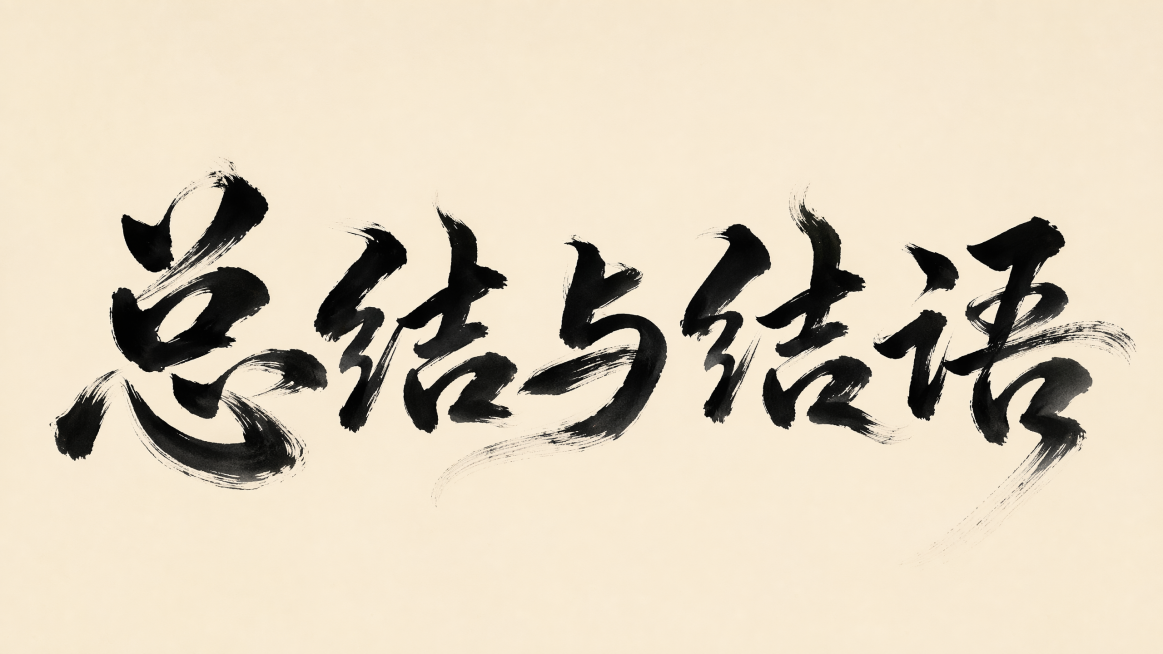 总结与结语